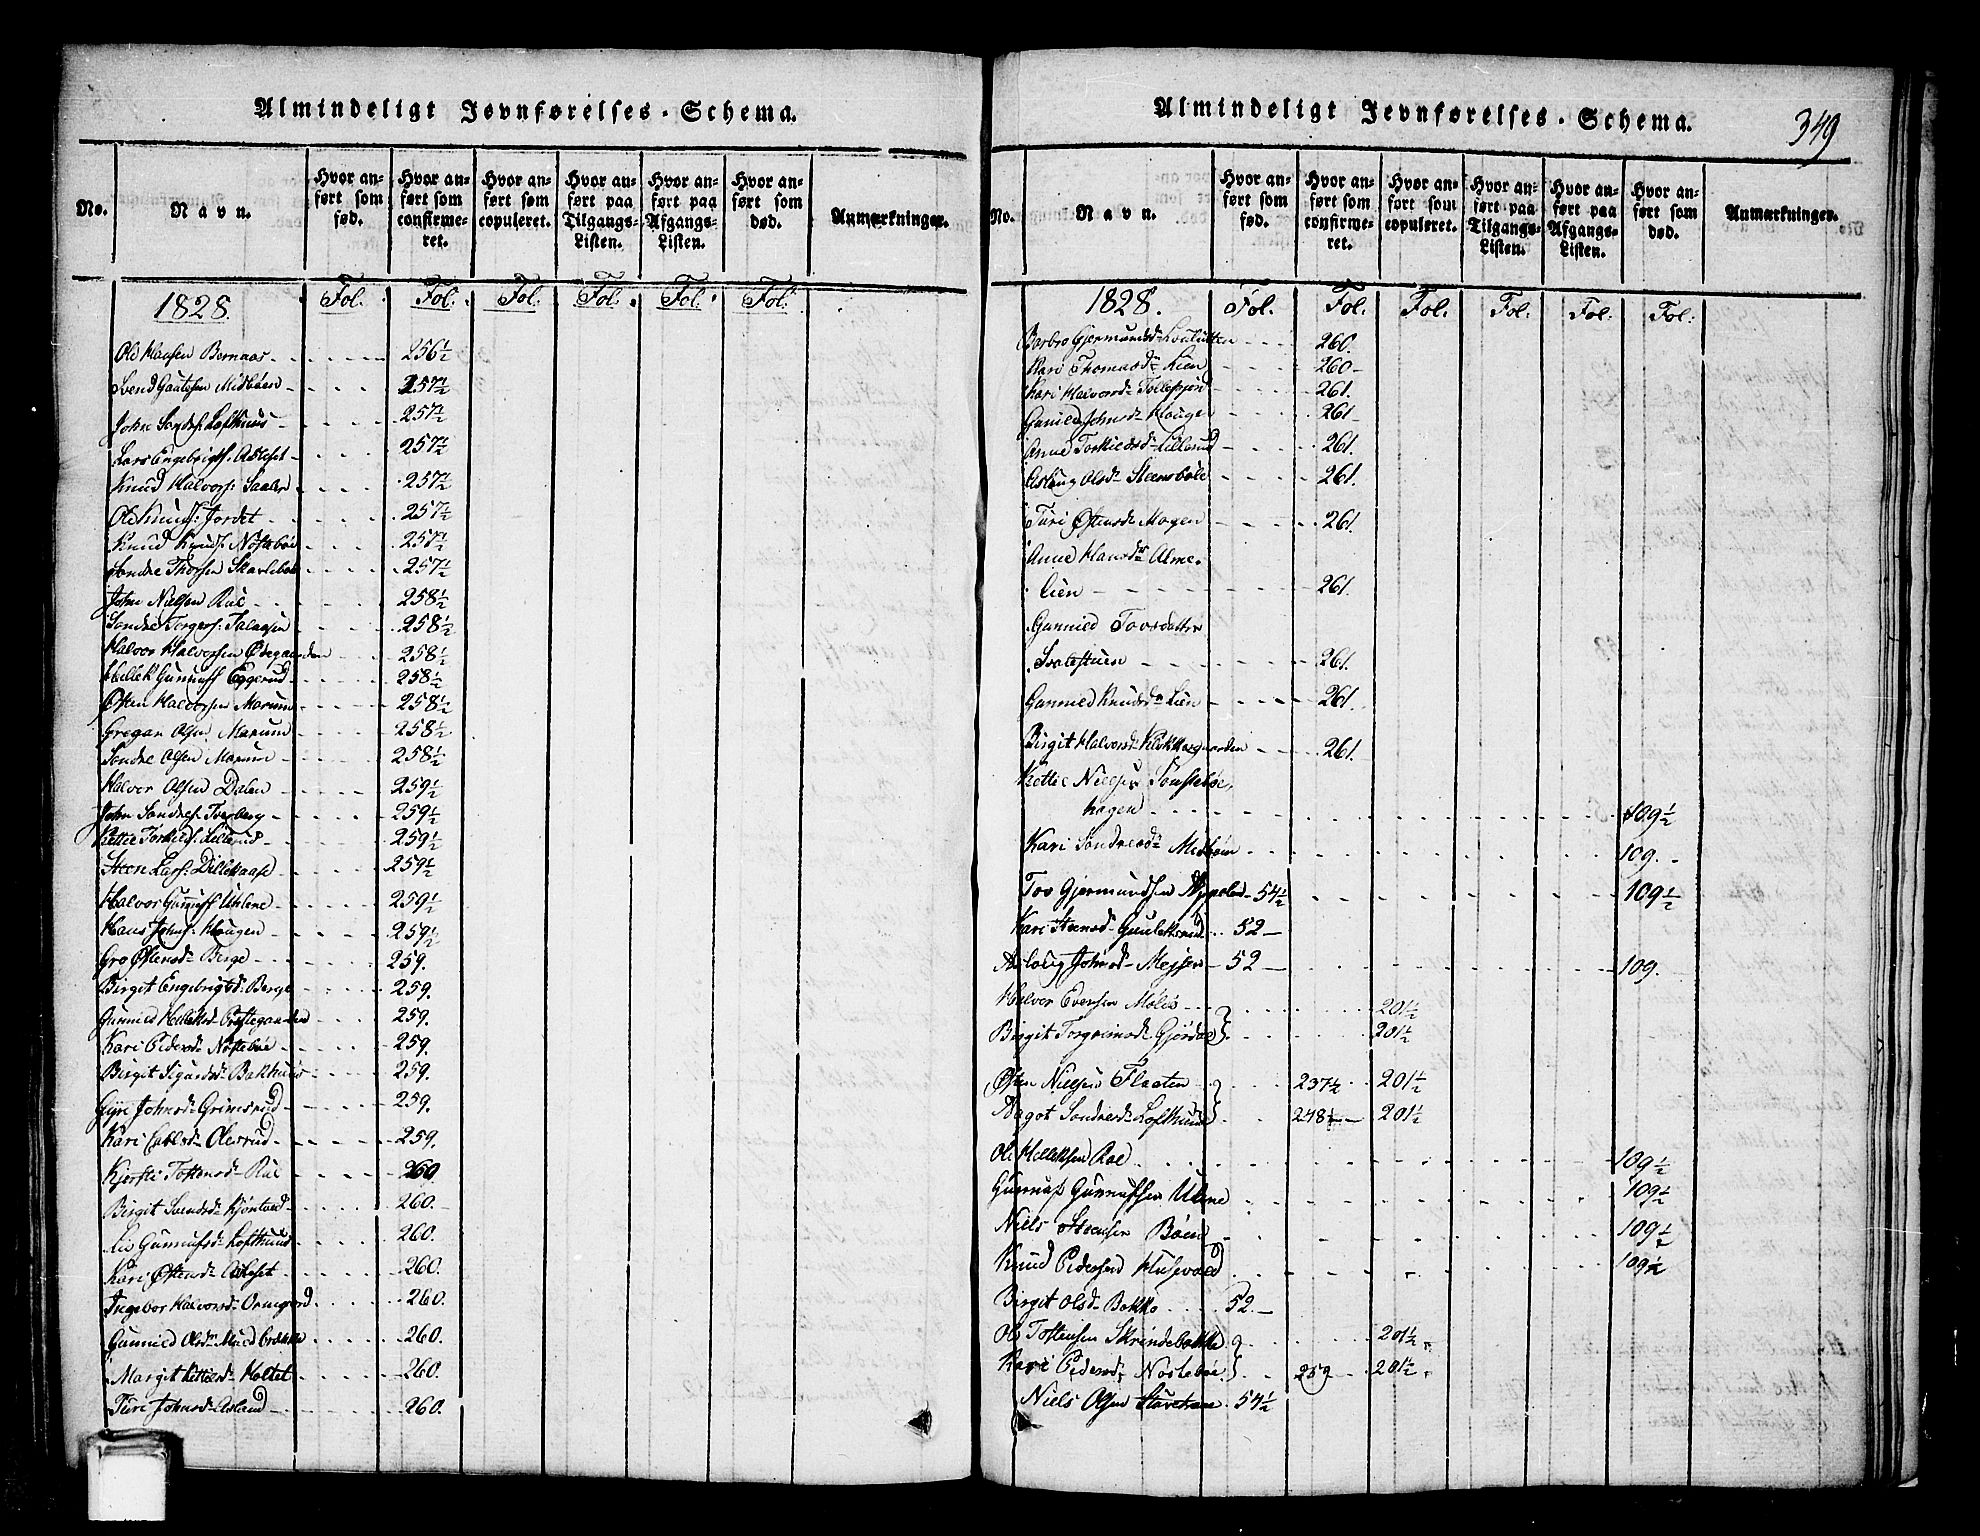 Almindeligt Jevnførelses-Schema.
No.
Navn.
Hvor anført som fød.
Hvor anført som confirmeret.
Hvor anført som copuleret.
Hvor anført paa Tilgangs-Listen.
Hvor anført paa Afgangs-Listen.
Hvor anført som død.
Anmærkninger.
1828. Fol. Fol. Fol. Fol. Fol. Fol.
Ole Hansen Bernaas 256½
Svend Gautesen Midbøen 257½
John Sondres. Lofthuus 257½
Lars Engebrigts. Asleset 257½
Knud Halvors: 257½
Ole Knuds: Jordet 257½
Knud Knuds. Nøstebøe 257½
Sondre Thorsen Skavlebøe 257½
John Nielsen Rue 258½
Sondre Torgers: 258½
Halvor Halvorsen Øvegaarden 258½
Hellek Gunnufs. Eggerud 258½
Østen Halvorsen Marum 258½
Gregar Olsen Marum 258½
Sondre Olsen Marum 258½
Halvor Olsen Dalen 259½
John Sondres. Tverberg 259½
Kittil Torkilds. Lillerud 259½
Steen Lars: 259½
Halvor Gunnufs. Uhlene 259½
Hans Johns. Haugen 259½
Gro Østensd- Berge 259.
Birgit Engebrigtsd: Berge 259.
Gunnild Helleksd- Præstegaarden 259.
Kari Pedersd- Nøstebøe 259.
Birgit Sigurdsd- Bakhuus 259.
Gyri Johnsd- Grimsrud 259.
Kari Olesrud 259.
Kjersti Tostensd- Rue 260
Birgit Svendsd- 260.
Liv Gunnufsd- Lofthuus 260.
Kari Østensd- Asleset 260.
Ingebor Halvorsd- 260.
Gunnild Olsdr 260.
Margit Kittilsd- Holtet 260.
Turi Johnsd- Asland 260.
Almindeligt Jevnførelses-Schema.
349
No.
Navn.
Hvor anført som fød.
Hvor anført som confirmeret.
Hvor anført som copuleret.
Hvor anført paa Tilgangs-Listen.
Hvor anført paa Afgangs-Listen.
Hvor anført som død.
Anmærkninger.
1828. Fol. Fol. Fol. Fol. Fol. Fol.
Barbro Gjermundsd- 260.
Kari Thomasd- Lien 260
Kari Halvorsd- 261.
Gunild Johnsd- Hauge 261
Anne Torkildsd- Lillerud 261.
Aslaug Olsd- Steensbøle 261.
Turi Østensd- Mogen 261
Anne Hansdr Alme-
lien 261.
Gunnild Tovsdatter
261.
Gunnild Knudsdr Lien 261.
Birgit Halvorsd- 261.
Kettil Nielsen Sønstebøe-
hagen 109½
Kari Sondresd- Midbøen 109.
Tov Gjermundsen 54½ 109½
Kari Steensd- Guuleksrud 52
Aslaug Johnsd- 52 109.
Halvor Evensen 201½
Birgit Torgrimsd- Gjøsdal 201½
Østen Nielsen Flaaten 237½ 201½
Aagot Sondresd- Lofthuus 248½ 201½
Ole Helleksen Roe 109½
Gunnuf Gunnufsen Uhlne 109½
Niels Steensen Bøen 109½
Knud Pedersen Husevold 109½
Birgit Olsd- Bakke 52.
Ole Tostensen Skrindebakke 201½
Kari Pedersd- Nøstebøe 259 201½
Niels Olsen 54½